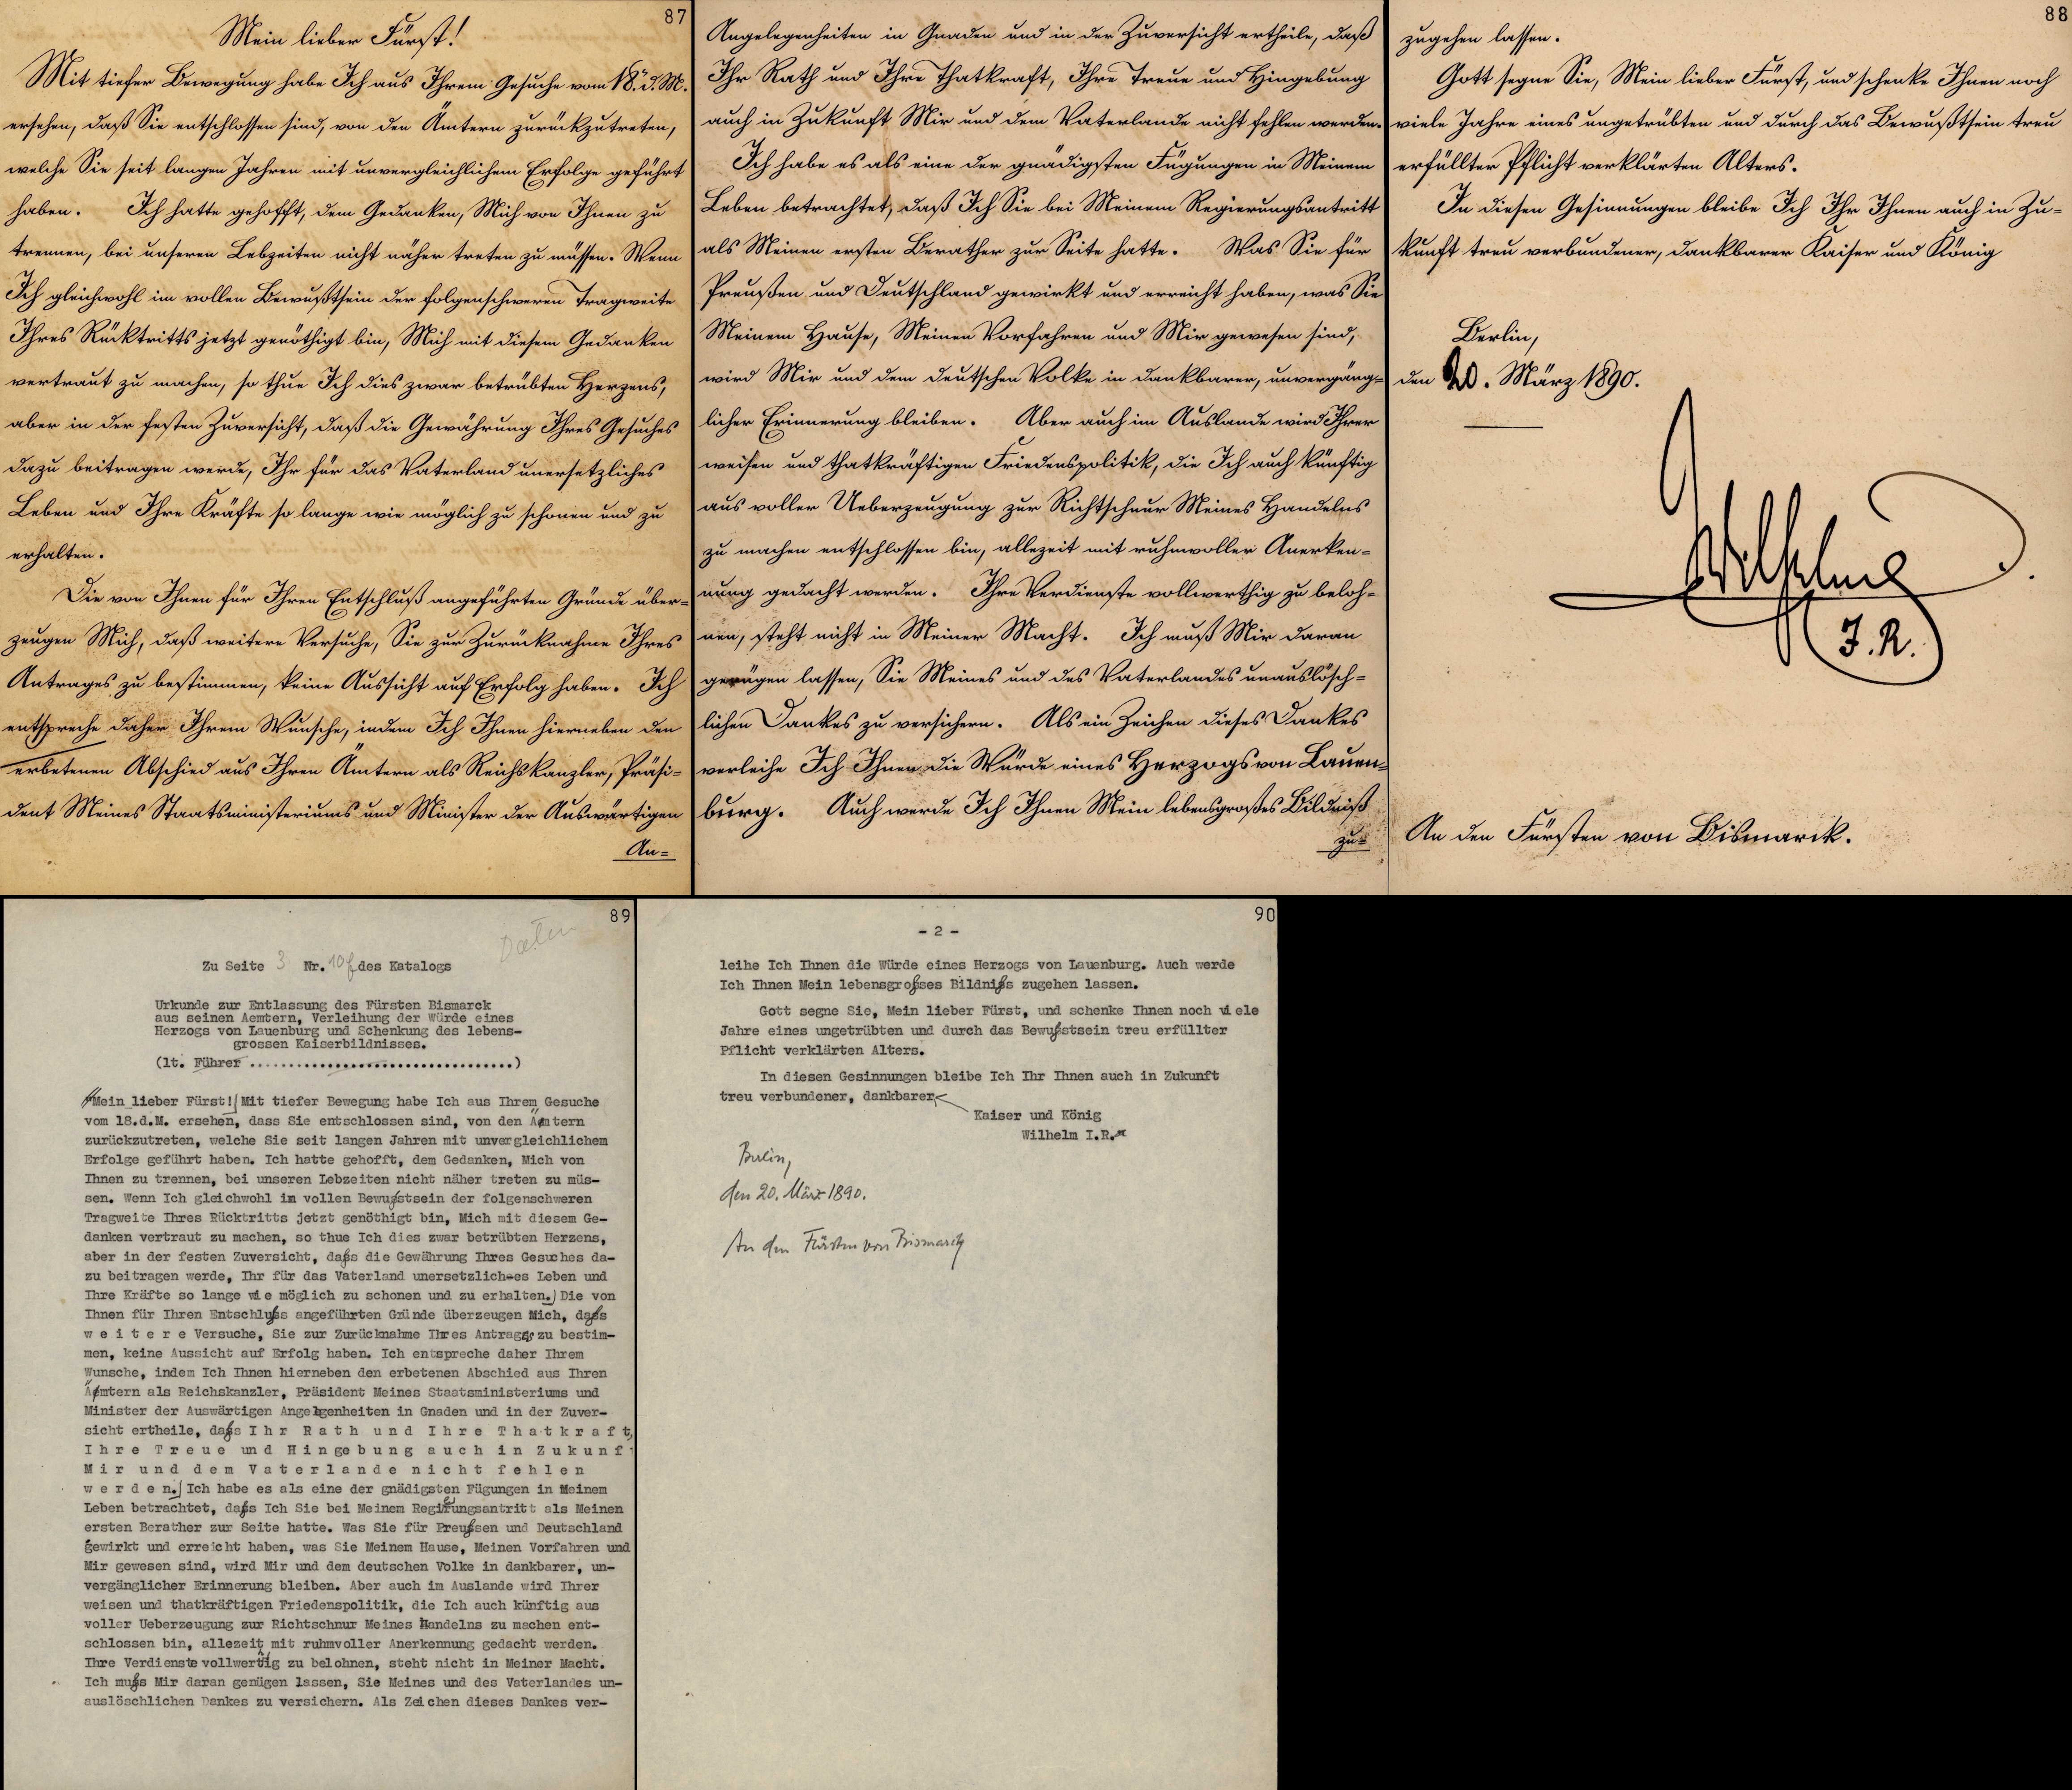 87
Mein lieber Fürst!
Mit tiefer Bewegung habe Ich aus Ihrem Gesuche vom 18. d. M.
ersehen, daß Sie entschlossen sind, von den Ämtern zurückzutreten,
welche Sie seit langen Jahren mit unvergleichlichem Erfolge geführt
haben. Ich hatte gehofft, dem Gedanken, Mich von Ihnen zu
trennen, bei unseren Lebzeiten nicht näher treten zu müssen. Wenn
Ich gleichwohl im vollen Bewußtsein der folgenschweren Tragweite
Ihres Rücktritts jetzt genöthigt bin, Mich mit diesem Gedanken
vertraut zu machen, so thue Ich dies zwar betrübten Herzens,
aber in der festen Zuversicht, daß die Gewährung Ihres Gesuches
dazu beitragen werde, Ihr für das Vaterland unersetzliches
Leben und Ihre Kräfte so lange wie möglich zu schonen und zu
erhalten.
Die von Ihnen für Ihren Entschluß angeführten Gründe über-
zeugen Mich, daß weitere Versuche, Sie zur Zurücknahme Ihres
Antrages zu bestimmen, keine Aussicht auf Erfolg haben. Ich
entspreche daher Ihrem Wunsche, indem Ich Ihnen hierneben den
erbetenen Abschied aus Ihren Ämtern als Reichskanzler, Präsi-
dent Meines Staatsministeriums und Minister der Auswärtigen
An-
Angelegenheiten in Gnaden und in der Zuversicht ertheile, daß
Ihr Rath und Ihre Thatkraft, Ihre Treue und Hingebung
auch in Zukunft Mir und dem Vaterlande nicht fehlen werden.
Ich habe es als eine der gnädigsten Fügungen in Meinem
Leben betrachtet, daß Ich Sie bei Meinem Regierungsantritt
als Meinen ersten Berather zur Seite hatte. Was Sie für
Preußen und Deutschland gewirkt und erreicht haben, was Sie
Meinem Hause, Meinen Vorfahren und Mir gewesen sind,
wird Mir und dem deutschen Volke in dankbarer, unvergäng-
licher Erinnerung bleiben. Aber auch im Auslande wird Ihrer
weisen und thatkräftigen Friedenspolitik, die Ich auch künftig
aus voller Ueberzeugung zur Richtschnur Meines Handelns
zu machen entschlossen bin, allezeit mit ruhmvoller Anerken-
nung gedacht werden. Ihre Verdienste vollwerthig zu beloh-
nen, steht nicht in Meiner Macht. Ich muß Mir daran
genügen lassen, Sie Meines und des Vaterlandes unauslösch-
lichen Dankes zu versichern. Als ein Zeichen dieses Dankes
verleihe Ich Ihnen die Würde eines Herzogs von Lauen-
burg. Auch werde Ich Ihnen Mein lebensgroßes Bildniß
zu-
88
zugehen lassen.
Gott segne Sie, Mein lieber Fürst, und schenke Ihnen noch
viele Jahre eines ungetrübten und durch das Bewußtsein treu
erfüllter Pflicht verklärten Alters.
In diesen Gesinnungen bleibe Ich Ihr Ihnen auch in Zu-
kunft treu verbundener, dankbarer Kaiser und König
Berlin,
den 20. März 1890.
Wilhelm
I. R.
An den Fürsten von Bismarck.
89
Daten
Zu Seite 3 Nr. 10f des Katalogs
Urkunde zur Entlassung des Fürsten Bismarck
aus seinen Aemtern, Verleihung der Würde eines
Herzogs von Lauenburg und Schenkung des lebens-
grossen Kaiserbildnisses.
(lt. Führer ..................................)
"Mein lieber Fürst! Mit tiefer Bewegung habe Ich aus Ihrem Gesuche
vom 18.d.M. ersehen, dass Sie entschlossen sind, von den Ämtern
zurückzutreten, welche Sie seit langen Jahren mit unvergleichlichem
Erfolge geführt haben. Ich hatte gehofft, dem Gedanken, Mich von
Ihnen zu trennen, bei unseren Lebzeiten nicht näher treten zu müs-
sen. Wenn Ich gleichwohl im vollen Bewußtsein der folgenschweren
Tragweite Ihres Rücktritts jetzt genöthigt bin, Mich mit diesem Ge-
danken vertraut zu machen, so thue Ich dies zwar betrübten Herzens,
aber in der festen Zuversicht, daß die Gewährung Ihres Gesuches da-
zu beitragen werde, Ihr für das Vaterland unersetzliches Leben und
Ihre Kräfte so lange wie möglich zu schonen und zu erhalten. Die von
Ihnen für Ihren Entschluß angeführten Gründe überzeugen Mich, daß
w e i t e r e Versuche, Sie zur Zurücknahme Ihres Antrages zu bestim-
men, keine Aussicht auf Erfolg haben. Ich entspreche daher Ihrem
Wunsche, indem Ich Ihnen hierneben den erbetenen Abschied aus Ihren
Ämtern als Reichskanzler, Präsident Meines Staatsministeriums und
Minister der Auswärtigen Angelegenheiten in Gnaden und in der Zuver-
sicht ertheile, daß I h r R a t h u n d I h r e T h a t k r a f t,
I h r e T r e u e und H i n g e b u n g a u c h i n Z u k u n f t
M i r u n d d e m V a t e r l a n d e n i c h t f e h l e n
w e r d e n. Ich habe es als eine der gnädigsten Fügungen in Meinem
Leben betrachtet, daß Ich Sie bei Meinem Regierungsantritt als Meinen
ersten Berather zur Seite hatte. Was Sie für Preußen und Deutschland
gewirkt und erreicht haben, was Sie Meinem Hause, Meinen Vorfahren und
Mir gewesen sind, wird Mir und dem deutschen Volke in dankbarer, un-
vergänglicher Erinnerung bleiben. Aber auch im Auslande wird Ihrer
weisen und thatkräftigen Friedenspolitik, die Ich auch künftig aus
voller Ueberzeugung zur Richtschnur Meines Handelns zu machen ent-
schlossen bin, allezeit mit ruhmvoller Anerkennung gedacht werden.
Ihre Verdienste vollwerthig zu belohnen, steht nicht in Meiner Macht.
Ich muß Mir daran genügen lassen, Sie Meines und des Vaterlandes un-
auslöschlichen Dankes zu versichern. Als Zeichen dieses Dankes ver-
90
- 2 -
leihe Ich Ihnen die Würde eines Herzogs von Lauenburg. Auch werde
Ich Ihnen Mein lebensgroßes Bildniß zugehen lassen.
Gott segne Sie, Mein lieber Fürst, und schenke Ihnen noch viele
Jahre eines ungetrübten und durch das Bewußtsein treu erfüllter
Pflicht verklärten Alters.
In diesen Gesinnungen bleibe Ich Ihr Ihnen auch in Zukunft
treu verbundener, dankbarer
Kaiser und König
Wilhelm I.R."
Berlin,
den 20. März 1890.
An den Fürsten von Bismarck